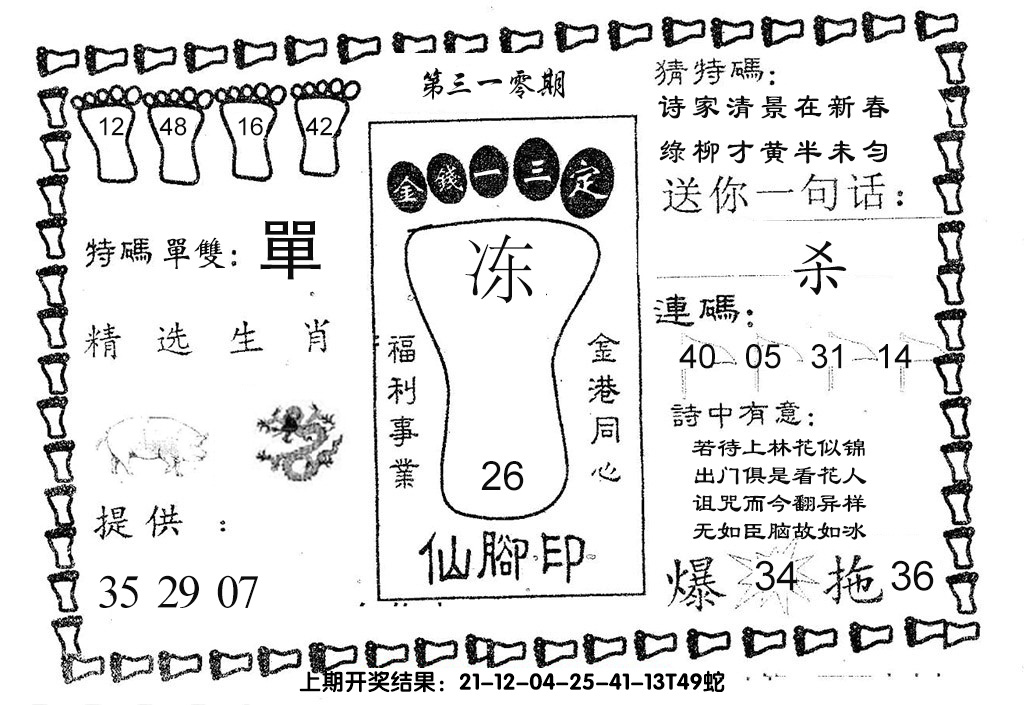 第三一零期
12 48 16 42
特碼單雙：單
精选生肖
提供：
35 29 07
金錢一三定
冻
福利事業
金港同心
26
仙腳印
猜特碼：
诗家清景在新春
綠柳才黄半未匀
送你一句话：
杀
連碼：
40 05 31 14
詩中有意：
若待上林花似锦
出门俱是看花人
诅咒而今翻异样
无如臣脑故如冰
爆 34 拖 36
上期开奖结果：21-12-04-25-41-13T49蛇